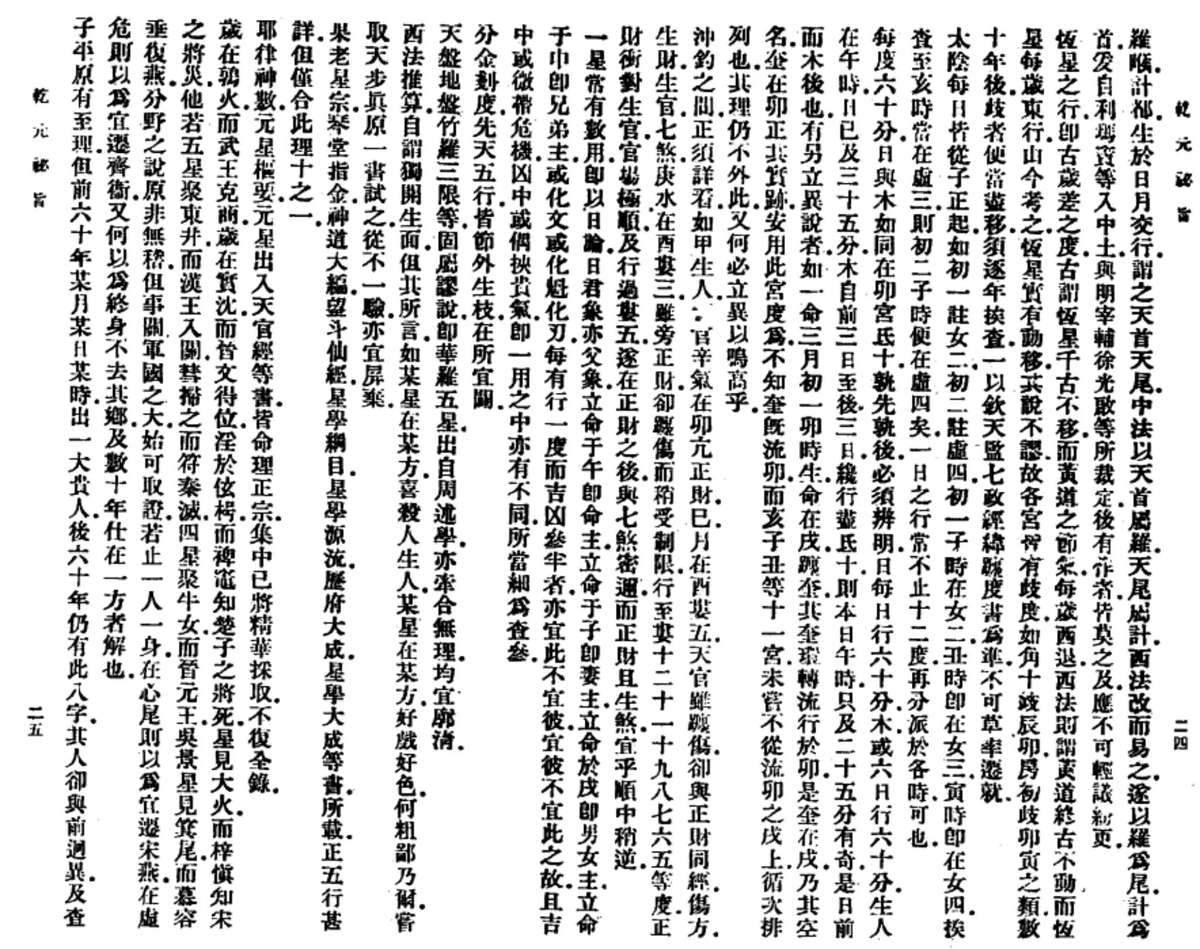 乾元祕旨
二四
羅㬋計都生於日月交行謂之天首天尾中法以天首屬羅天尾屬計西法改而易之遂以羅爲尾計爲
首爰自利瑪竇等入中土與明宰輔徐光啟等所裁定後有作者皆莫之及應不可輕議紛更
恆星之行卽古歲差之度古謂恆星千古不移而黃道之節氣每歲西退西法則謂黃道終古不動而恆
星每歲東行山今考之恆星實有動移其說不謬故各宮皆有歧度如角十歧辰卯房初歧卯寅之類數
十年後歧者便當盡移須逐年挨查一以欽天監七政經緯躔度書爲準不可草率遷就
太陰每日皆從子正起如初一註女二初二註虛四初一子時在女二丑時卽在女三寅時卽在女四挨
查至亥時當在虛三則初二子時便在虛四矣一日之行常不止十二度再分派於各時可也
每度六十分日與木如同在卯宮氐十孰先孰後必須辨明日每日行六十分木或六日行六十分生人
在午時日已及三十五分木自前三日至後三日纔行盡氐十則本日午時只及二十五分有奇是日前
而木後也有另立異說者如一命三月初一卯時生命在戌躔奎其奎環轉流行於卯是奎在戌乃其空
名奎在卯正其實跡安用此宮度爲不知奎旣流卯而亥子丑等十一宮未嘗不從流卯之戌上循次排
列也其理仍不外此又何必立異以鳴高乎
沖釣之間正須詳看如甲生人官辛氣在卯亢正財巳月在酉婁五天官雖躔傷卻與正財同經傷方
生財生官七煞庚水在酉婁三雖旁正財卻躔傷而稍受制限行至婁十二十一十九八七六五等度正
財衝對生官官場極順及行過婁五遂在正財之後與七煞密邇而正財且生煞宜乎順中稍逆
一星常有數用卽以日論日君象亦父象立命于午卽命主立命于子卽妻主立命於戌卽男女主立命
于巾卽兄弟主或化文或化魁化刃每有行一度而吉凶參半者亦宜此不宜彼宜彼不宜此之故且吉
中或微樁危機凶中或偶挾貴氣卽一用之中亦有不同所當細爲查參
分金刻度先天五行皆節外生枝在所宜闢
天盤地盤竹羅三限等固屬謬說卽華羅五星出自周述學亦牽合無理均宜廓清
西法推算自謂獨開生面但其所言如某星在某方喜殺人生人某星在某方好戲好色何粗鄙乃爾嘗
取天步眞原一書試之從不一驗亦宜屏棄
果老星宗琴堂指金神道大編望斗仙經星學綱目星學源流歷府大成星學大成等書所載正五行甚
詳但僅合此理十之一
耶律神數元星樞要元星出入天官經等書皆命理正宗集中已將精華採取不復全錄
歲在鶉火而武王克商歲在實沈而晉文得位淫於伭枵而裨竈知楚子之將死星見大火而梓愼知宋
之將災他若五星聚東井而漢王入關彗掃之而符秦滅四星聚牛女而晉元王吳景星見箕尾而慕容
垂復燕分野之說原非無稽但事關軍國之大始可取證若止一人一身在心尾則以爲宜遷宋燕在虛
危則以爲宜遷齊衞又何以爲終身不去其鄉及數十年仕在一方者解也
子平原有至理但前六十年某月某日某時出一大貴人後六十年仍有此八字其人卻與前迥異及查
乾元祕旨
二五